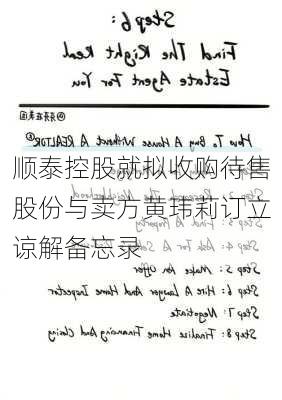 Step 6:
Find The Right Real
Estate Agent For You
How To Buy A House Without A REALTOR®
顺泰控股就拟收购待售
股份与卖方黄玮莉订立
谅解备忘录
Step 4: Ask For A
Step 5: Make An Offer
Step 6: Hire A Lawyer And Home Inspector
Step 7: Negotiate
Step 8: Finalize Home Financing And Closing